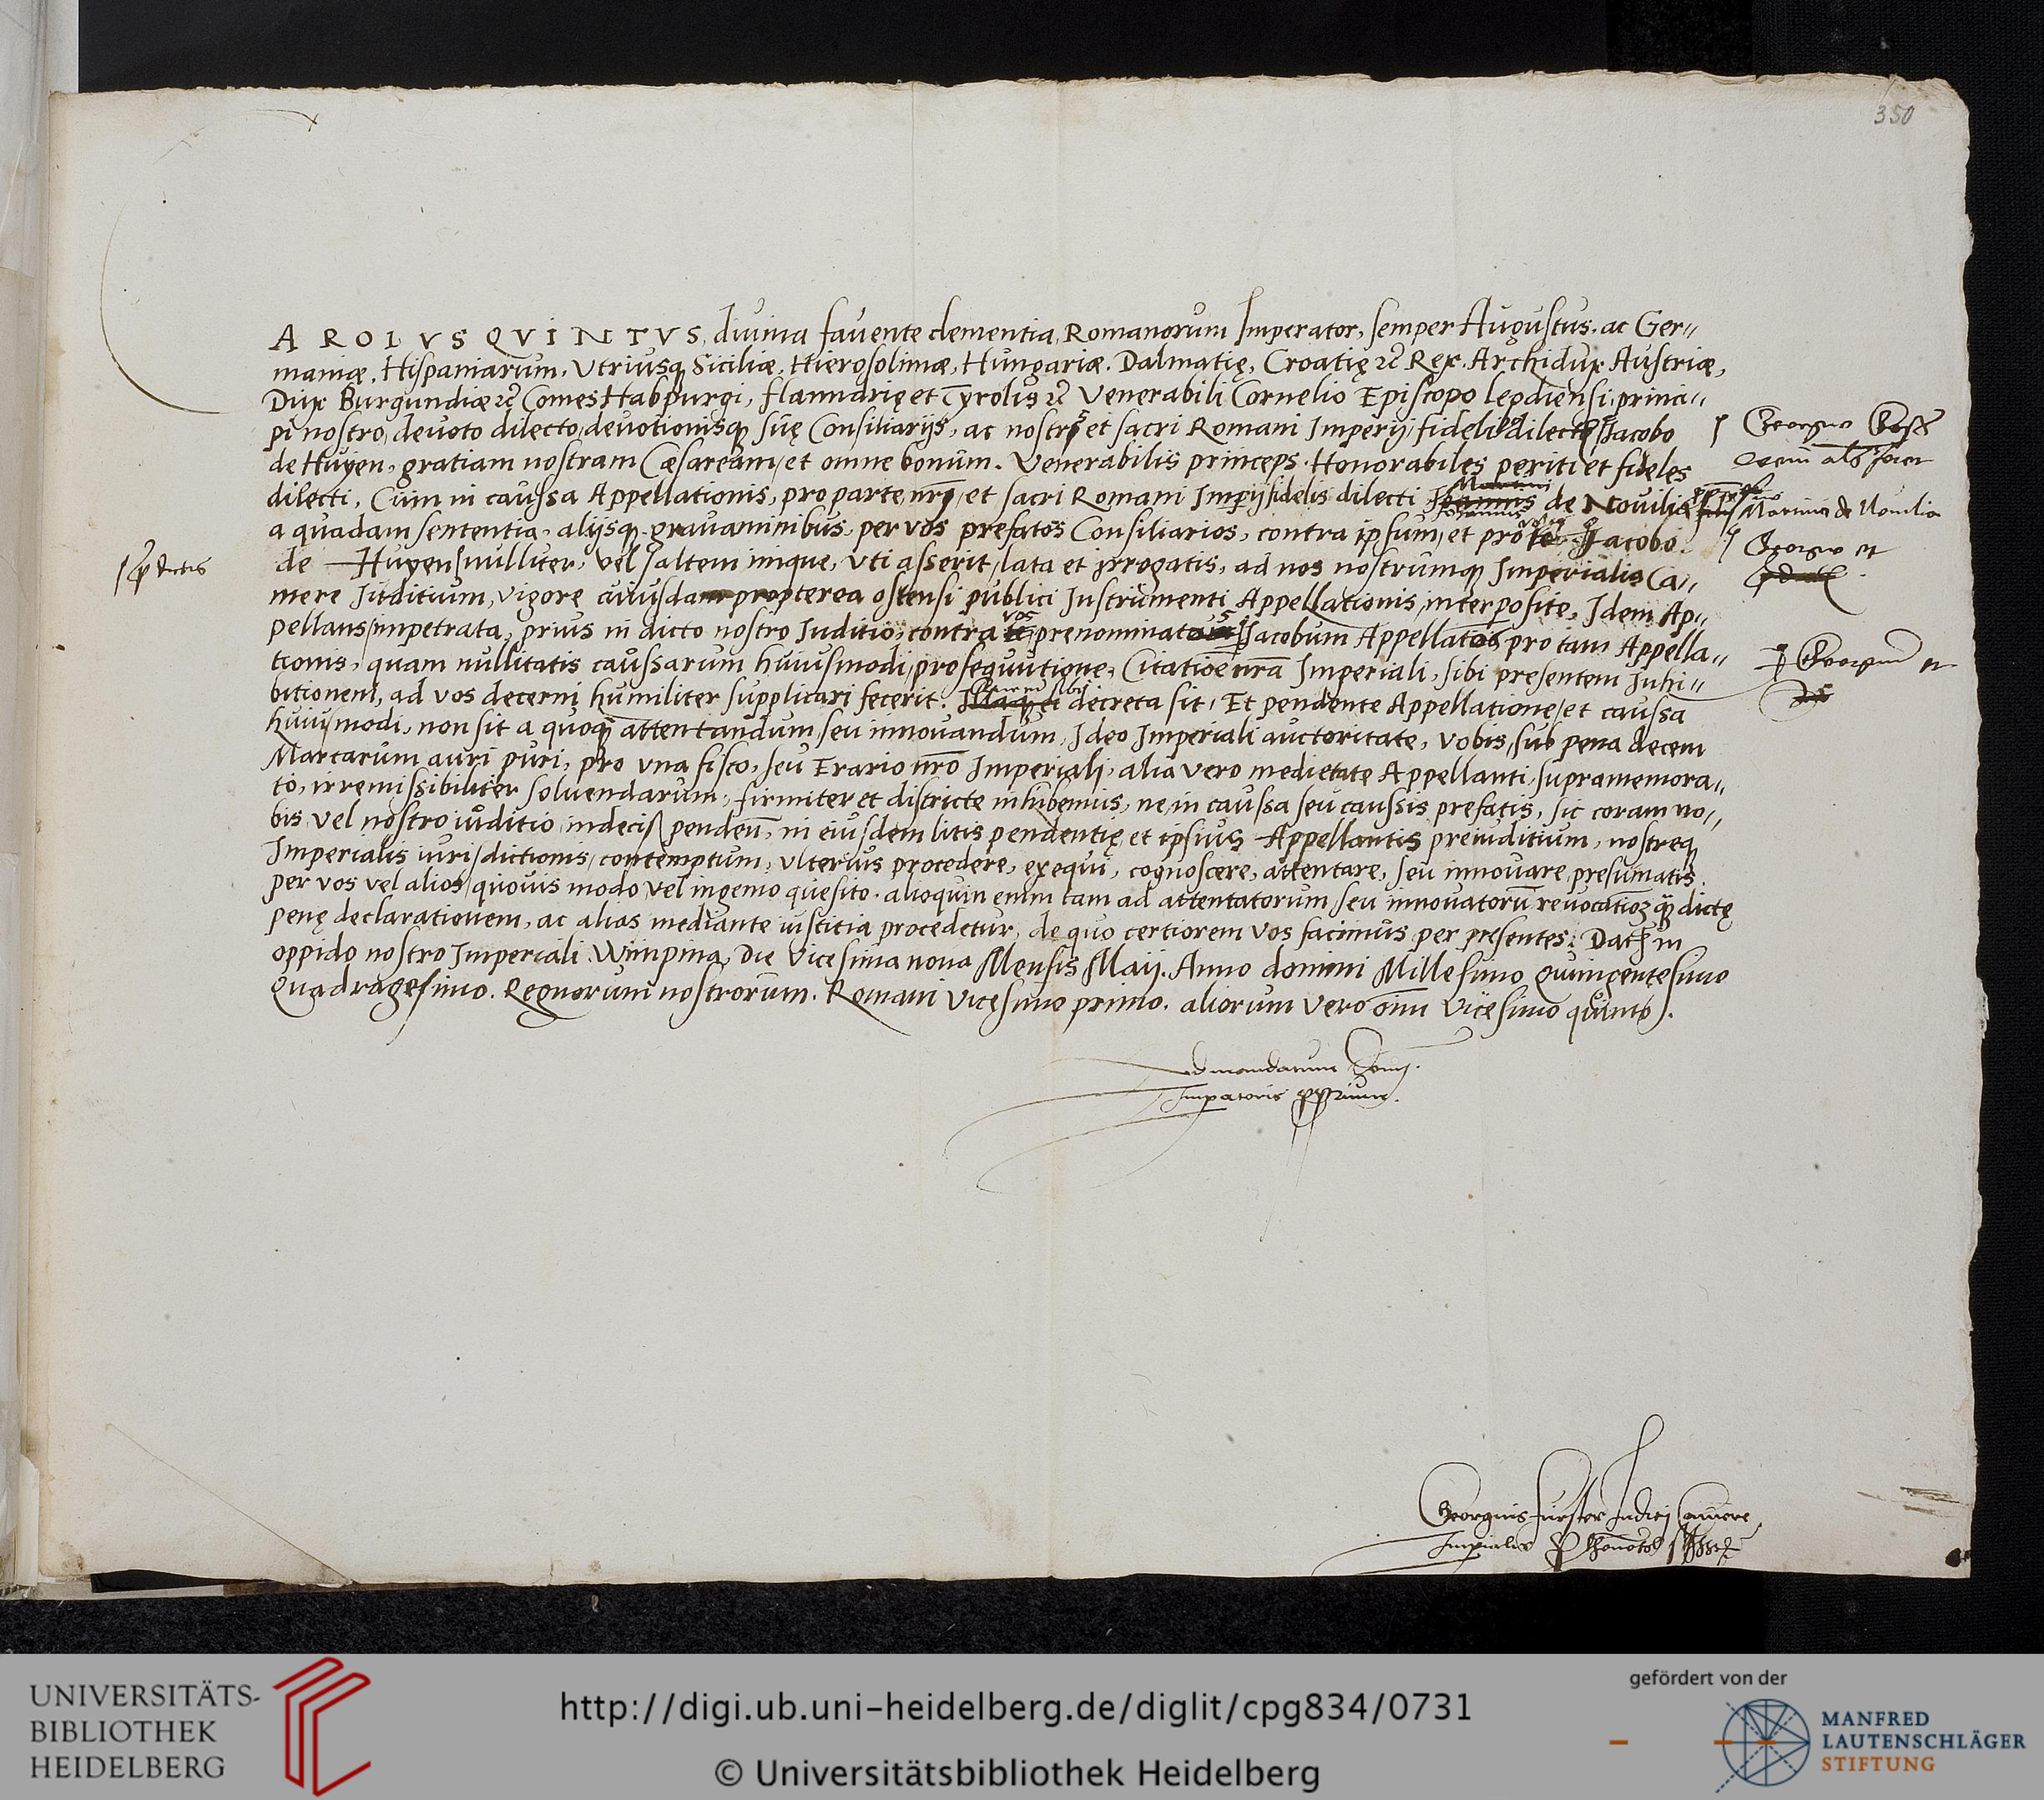 350
A R O L V S Q V I N T V S, divina favente clementia, Romanorum Imperator, semper Augustus, ac Ger"
maniæ, Hispaniarum, Utriusq Siciliæ, Hierosolimæ, Hungariæ, Dalmatię, Croatię Rex. Archidux Austriæ,
Dux Burgundiæ Comes Habspurgi, Flanndrię et Tyrolis Venerabili Cornelio Episcopo princi"
pi nostro, devoto dilecto, devotionisq sűę Consiliarijs, ac et sacri Romani Imperij, Jacobo
de Huyen, gratiam nostram Cæsaream, et omne bonům. Venerabilis princeps. Honorabiles periti et fideles
dilecti, Cům in caussa Appellationis, pro parte, nrj, et sacri Romani Imperij fidelis dilecti de Novilia Martini de Novilia
a quadam sententia, alijsq gravaminibus, per vos prefatos Consiliarios, contra ipsum, et pro Jacobo
de Huyen, nulliter, vel saltem inique, uti asserit, lata et irrogatis, ad nos nostrumq Imperialis Ca"
mere Juditium, vigore cuiusdam propterea ostensi publici Instrumenti Appellationis, interposite, Idem Ap"
pellans, impetrata, prius in dicto nostro Juditio, contra vos Jacobum pro tam Appella"
tionis, quam nullitatis caůssarum huiusmodi, Citatioē nrā Imperiali, sibi presentem Inhi"
bitionem, ad vos decerni humiliter supplicari fecerit. decreta sit, Et pendente Appellatione, et caussa
huiusmodi, non sit a quoq attentandum, seu innovandum, Ideo Imperiali auctoritate, vobis, sub pena decem
Marcarum auri puri, pro una fisco, seu Erario nrō Imperiali, alia vero medietate Appellanti, supramemora"
to, irremissibiliter solvendarum, firmiter et districte inhibemus, ne, in caussa seu caussis prefatis, sic coram no"
bis vel nostro iůditio, indeciß, penden, in eiusdem litis pendentię, et ipsius Appellantis preiuditium, nostreq
Imperialis iurisdictionis, contemptum, ulterius procedere, exequi, cognoscere, attentare, seu innovare presumatis
per vos vel alios, quovis modo, vel ingenio quesito. alioquin enim tam ad attentatorum, seu dictę
penę declarationem, ac alias mediante iustitia procedetur, de quo certiorem vos facimůs per presentes. in
oppido nostro Imperiali Wimpina, Die Vicesima nona Mensis Maij. Anno domini Millesimo quingentesimo
Quadragesimo. Regnorum nostrorum. Romani vicesimo primo. aliorum vero oīm vicesimo quinto.
Ad mandatum
Imperatoris
Georgius
Georgio et
Georgium et
Georgius Fürster Judicij Camere
UNIVERSITÄTS-
BIBLIOTHEK
HEIDELBERG
http://digi.ub.uni-heidelberg.de/diglit/cpg834/0731
© Universitätsbibliothek Heidelberg
gefördert von der
MANFRED
LAUTENSCHLÄGER
STIFTUNG